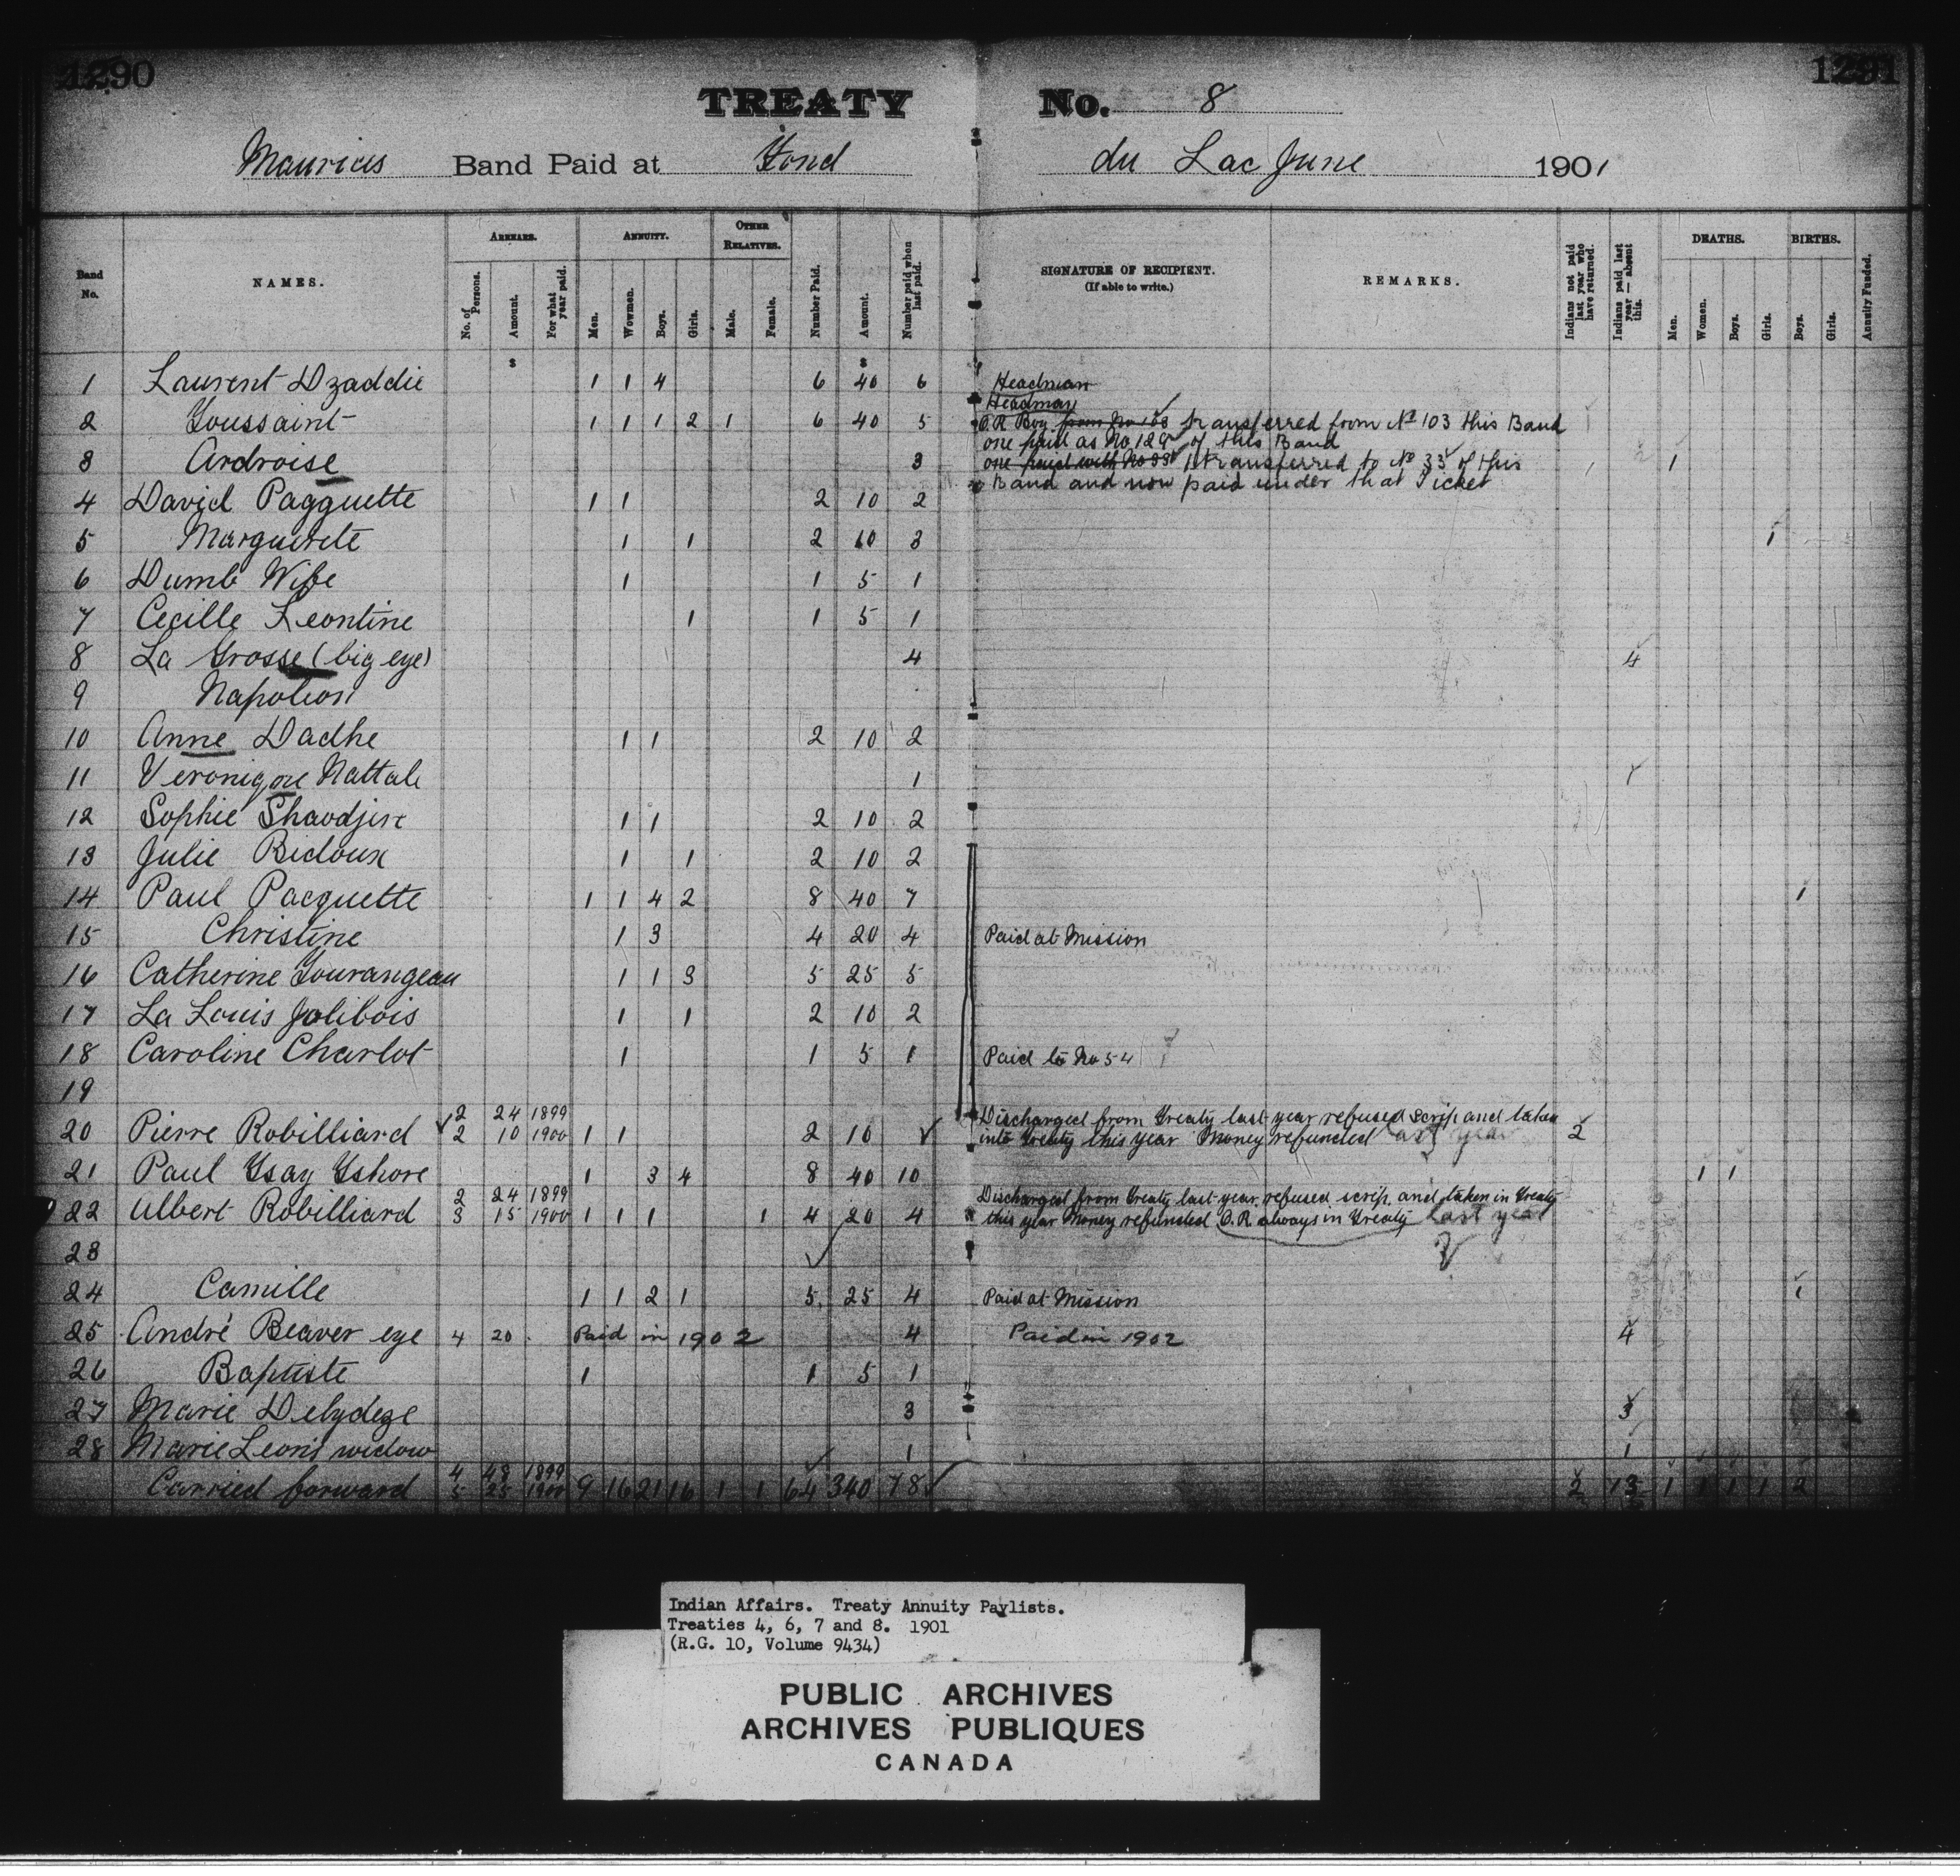 1290
1291
TREATY No. 8
Mauricis Band Paid at Fond du Lac June 1901
Band No.
NAMES.
ARREARS.
No. of Persons.
Amount.
For what year paid.
ANNUITY.
Men.
Wowmen.
Boys.
Girls.
OTHER RELATIVES.
Male.
Female.
Number Paid.
Amount.
Number paid when last paid.
SIGNATURE OF RECIPIENT.
(If able to write.)
REMARKS.
Indians not paid last year who have returned.
Indians paid last year — absent this.
DEATHS.
Men.
Women.
Boys.
Girls.
BIRTHS.
Boys.
Girls.
Annuity Funded.
$ $
1 Laurent Dzaddie 1 1 4 6 40 6 Headman
Headman
2 Toussaint 1 1 1 2 1 6 40 5 O.R Boy from No 103 transferred from No 103 this Band
one paid as No 129 of this Band
3 Ardroise 3 one paid with No 33 1 transferred to No 33 of this 1
Band and now paid under that Ticket
4 David Pagguette 1 1 2 10 2
5 Marguerite 1 1 2 10 3 1
6 Dumb Wife 1 1 5 1
7 Cecille Leontine 1 1 5 1
8 La Grosse (big eye) 4 4
9 Napoleon
10 Anne Dadhe 1 1 2 10 2
11 Veronigne Nattale 1
12 Sophie Shaodjire 1 1 2 10 2
13 Julie Bidoux 1 1 2 10 2
14 Paul Pacquette 1 1 4 2 8 40 7 1
15 Christine 1 3 4 20 4 Paid at Mission
16 Catherine Tourangeau 1 1 3 5 25 5
17 La Louis Jolibois 1 1 2 10 2
18 Caroline Charlot 1 1 5 1 Paid to No 54
19
2 24 1899 Discharged from Treaty last year refused scrip and taken
20 Pierre Robilliard 2 10 1900 1 1 2 10 into Treaty this year Money refunded last year 2
21 Paul Tsay Tshore 1 3 4 8 40 10 1 1
2 24 1899 Discharged from Treaty last year, refused scrip, and taken in Treaty
22 Albert Robilliard 3 15 1900 1 1 1 1 4 20 4 this year Money refunded O.R always in Treaty last year
23
24 Camille 1 1 2 1 5 25 4 Paid at Mission 1
25 André Beaver eye 4 20 Paid in 1902 4 Paid in 1902 4
26 Baptiste 1 1 5 1
27 Marie Delydeze 3 3
28 Marie Leon's widow 1 1
4 48 1899
Carried forward 5 25 1900 9 16 21 16 1 1 64 340 78 2 13 1 1 1 1 2
Indian Affairs. Treaty Annuity Paylists.
Treaties 4, 6, 7 and 8. 1901
(R.G. 10, Volume 9434)
PUBLIC ARCHIVES
ARCHIVES PUBLIQUES
CANADA